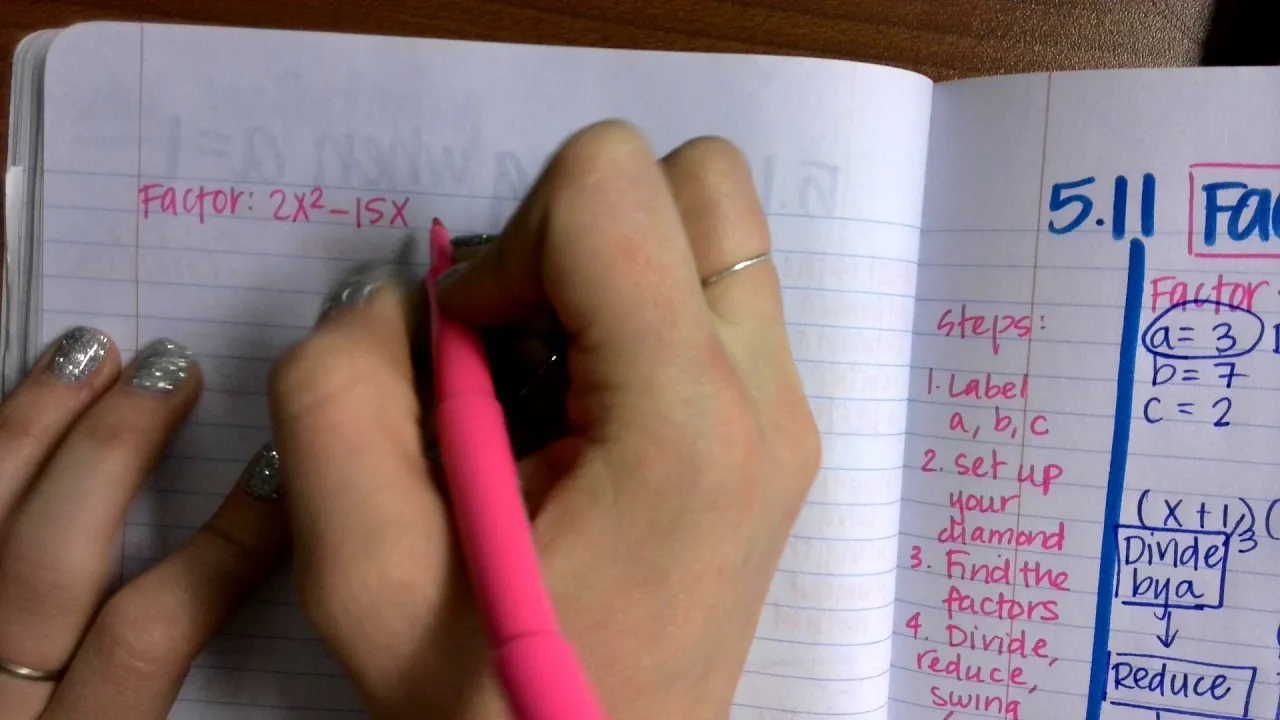 Factor: 2x² - 15x
5.11
Factor
a = 3
b = 7
c = 2
(x + 1/3)(
Divide
by a
Reduce
Steps:
1. Label
a, b, c
2. set up
your
diamond
3. Find the
factors
4. Divide,
reduce,
swing